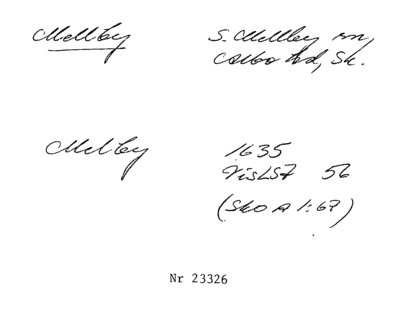 Mellby S. Mellby sn,
Albo hd, Sk.
Mellby 1635
56
(SkO A 1:67)
Nr 23326